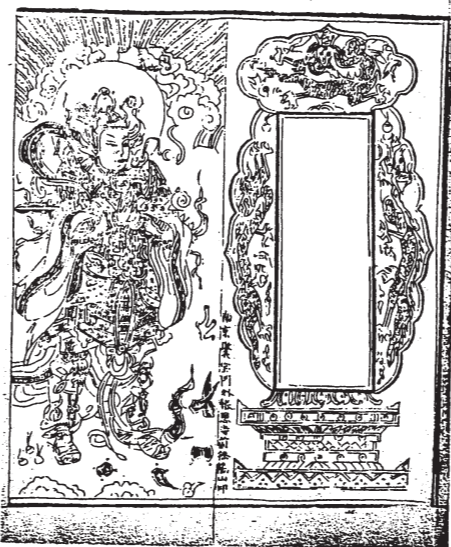 南京聚宝門外報恩寺前徐龍山印